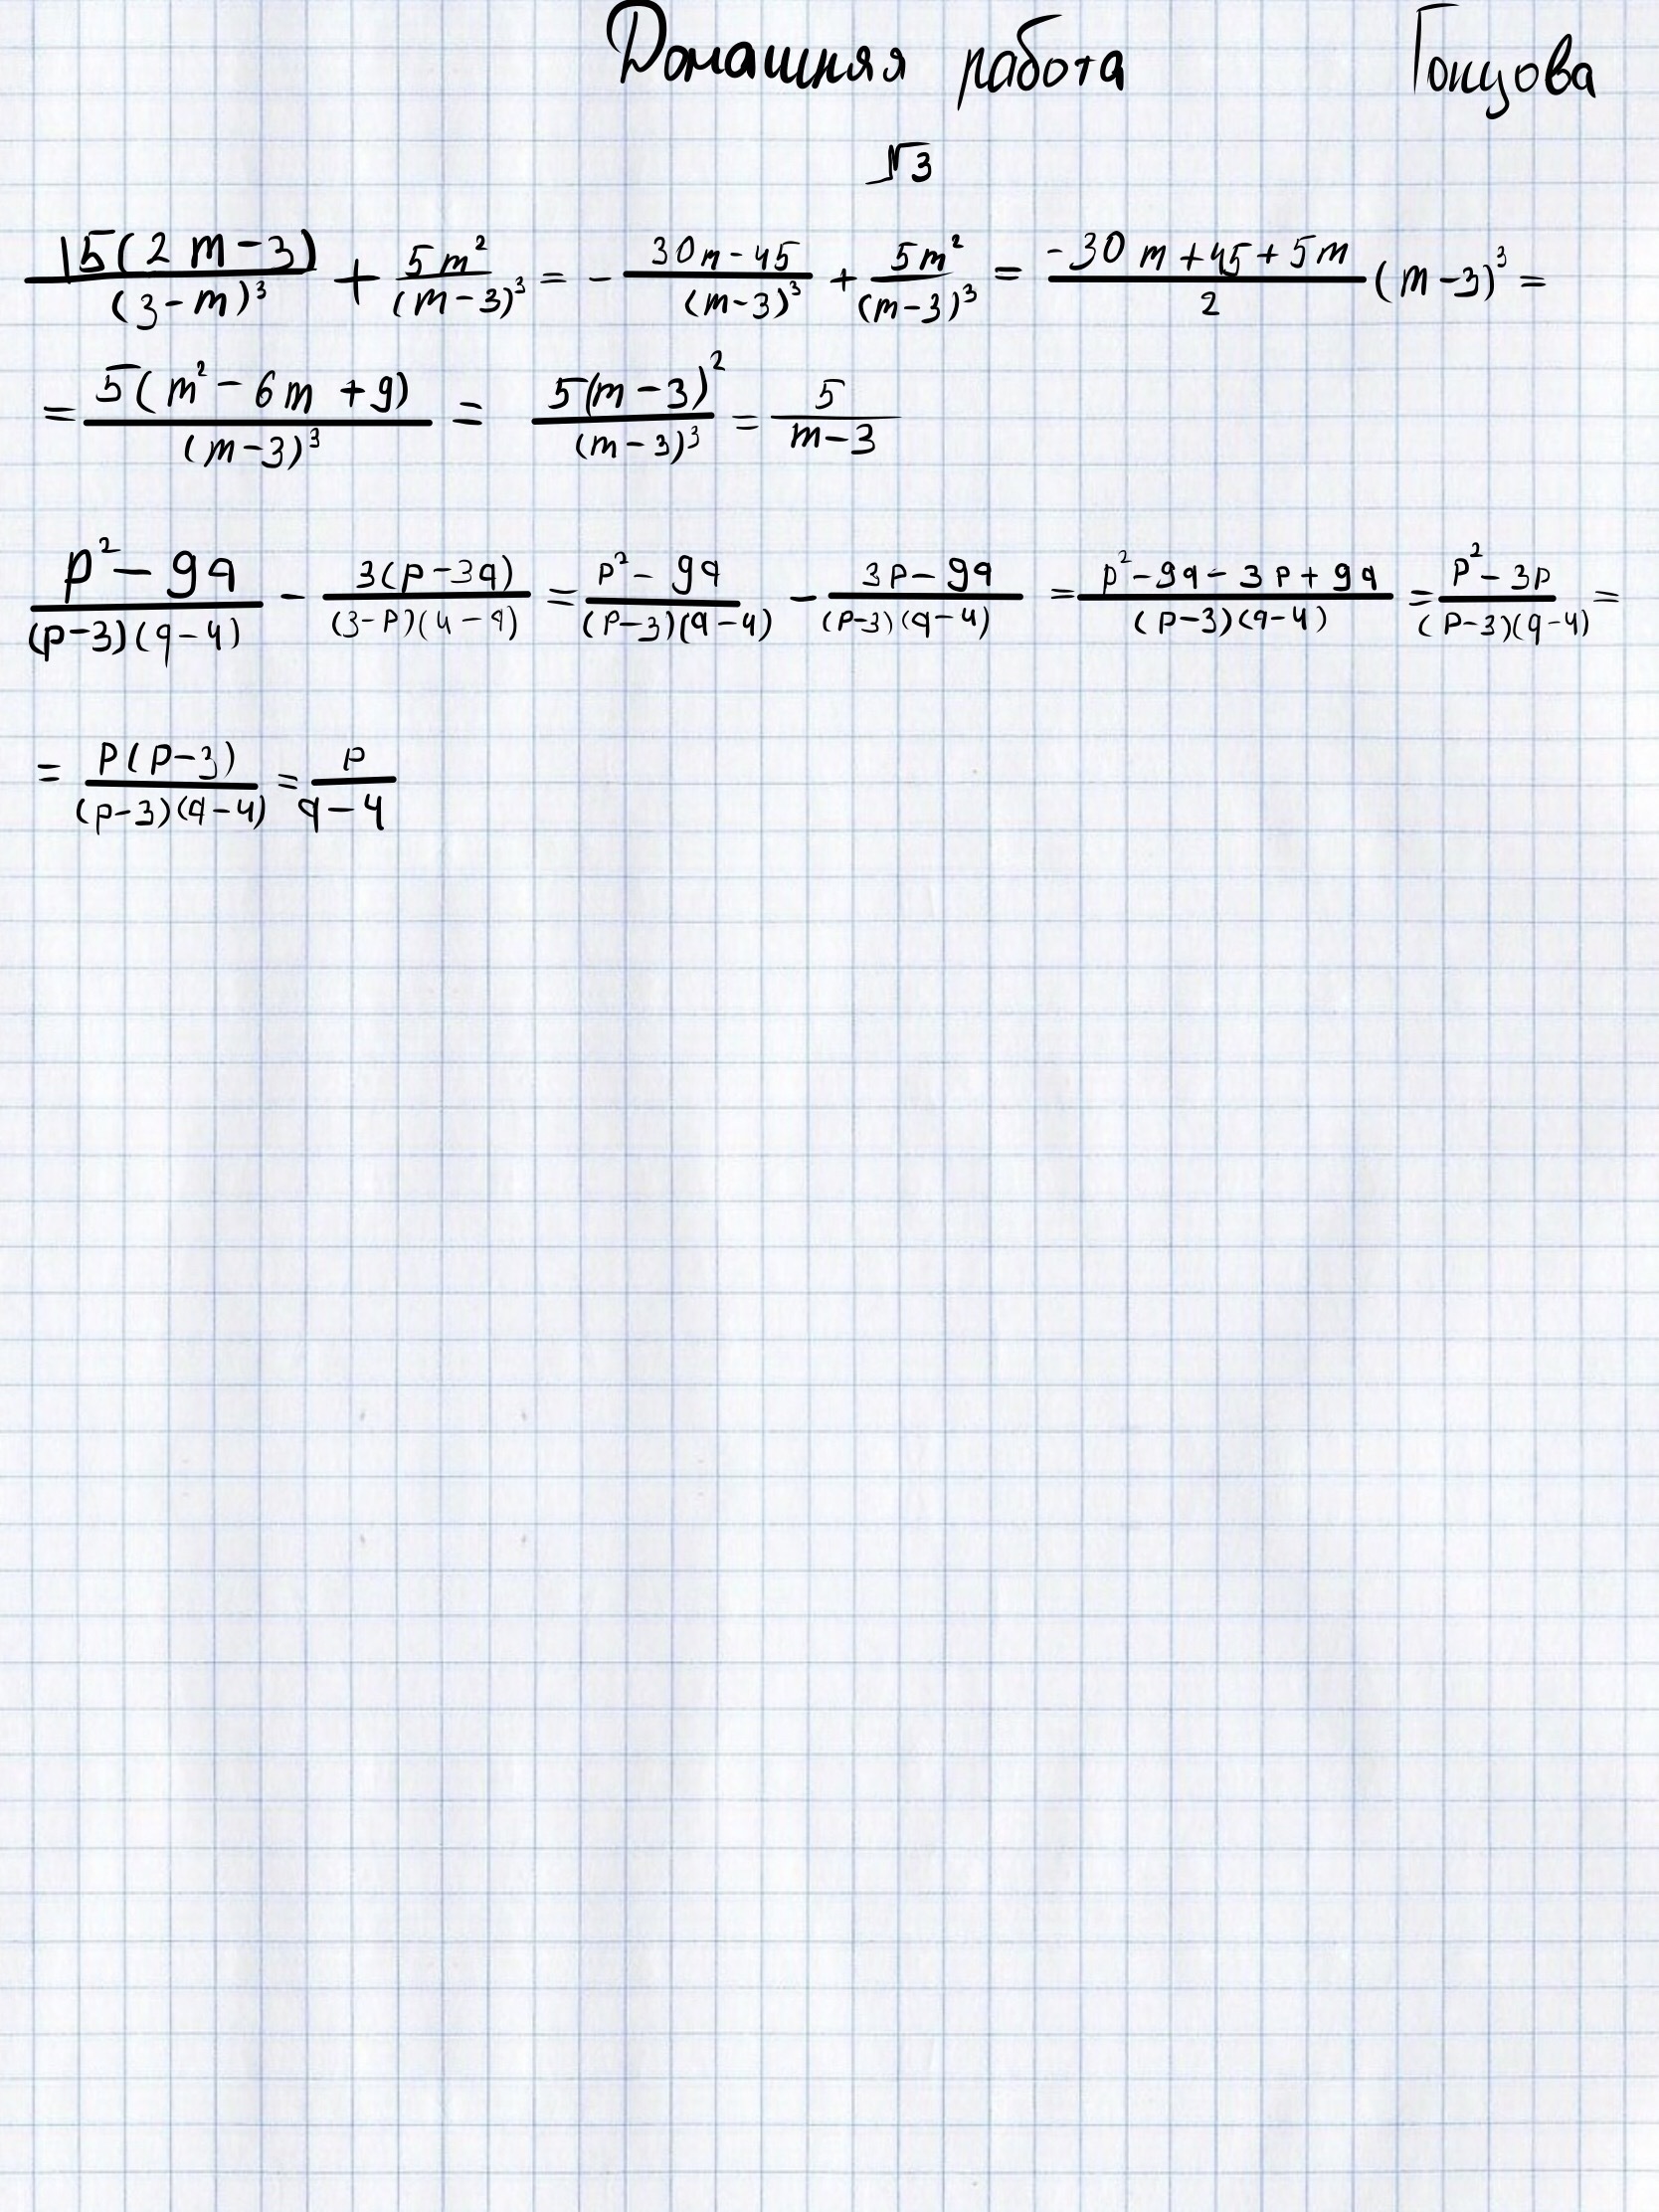 Домашняя работа Гонцова
№3
15(2m-3)/(3-m)³ + 5m²/(m-3)³ = - 30m-45/(m-3)³ + 5m²/(m-3)³ = -30m+45+5m/2 (m-3)³ =
= 5(m²-6m+9)/(m-3)³ = 5(m-3)²/(m-3)³ = 5/m-3
p²-9q/(p-3)(q-4) - 3(p-3q)/(3-p)(4-q) = p²-9q/(p-3)(q-4) - 3p-9q/(p-3)(q-4) = p²-9q-3p+9q/(p-3)(q-4) = p²-3p/(p-3)(q-4) =
= p(p-3)/(p-3)(q-4) = p/q-4